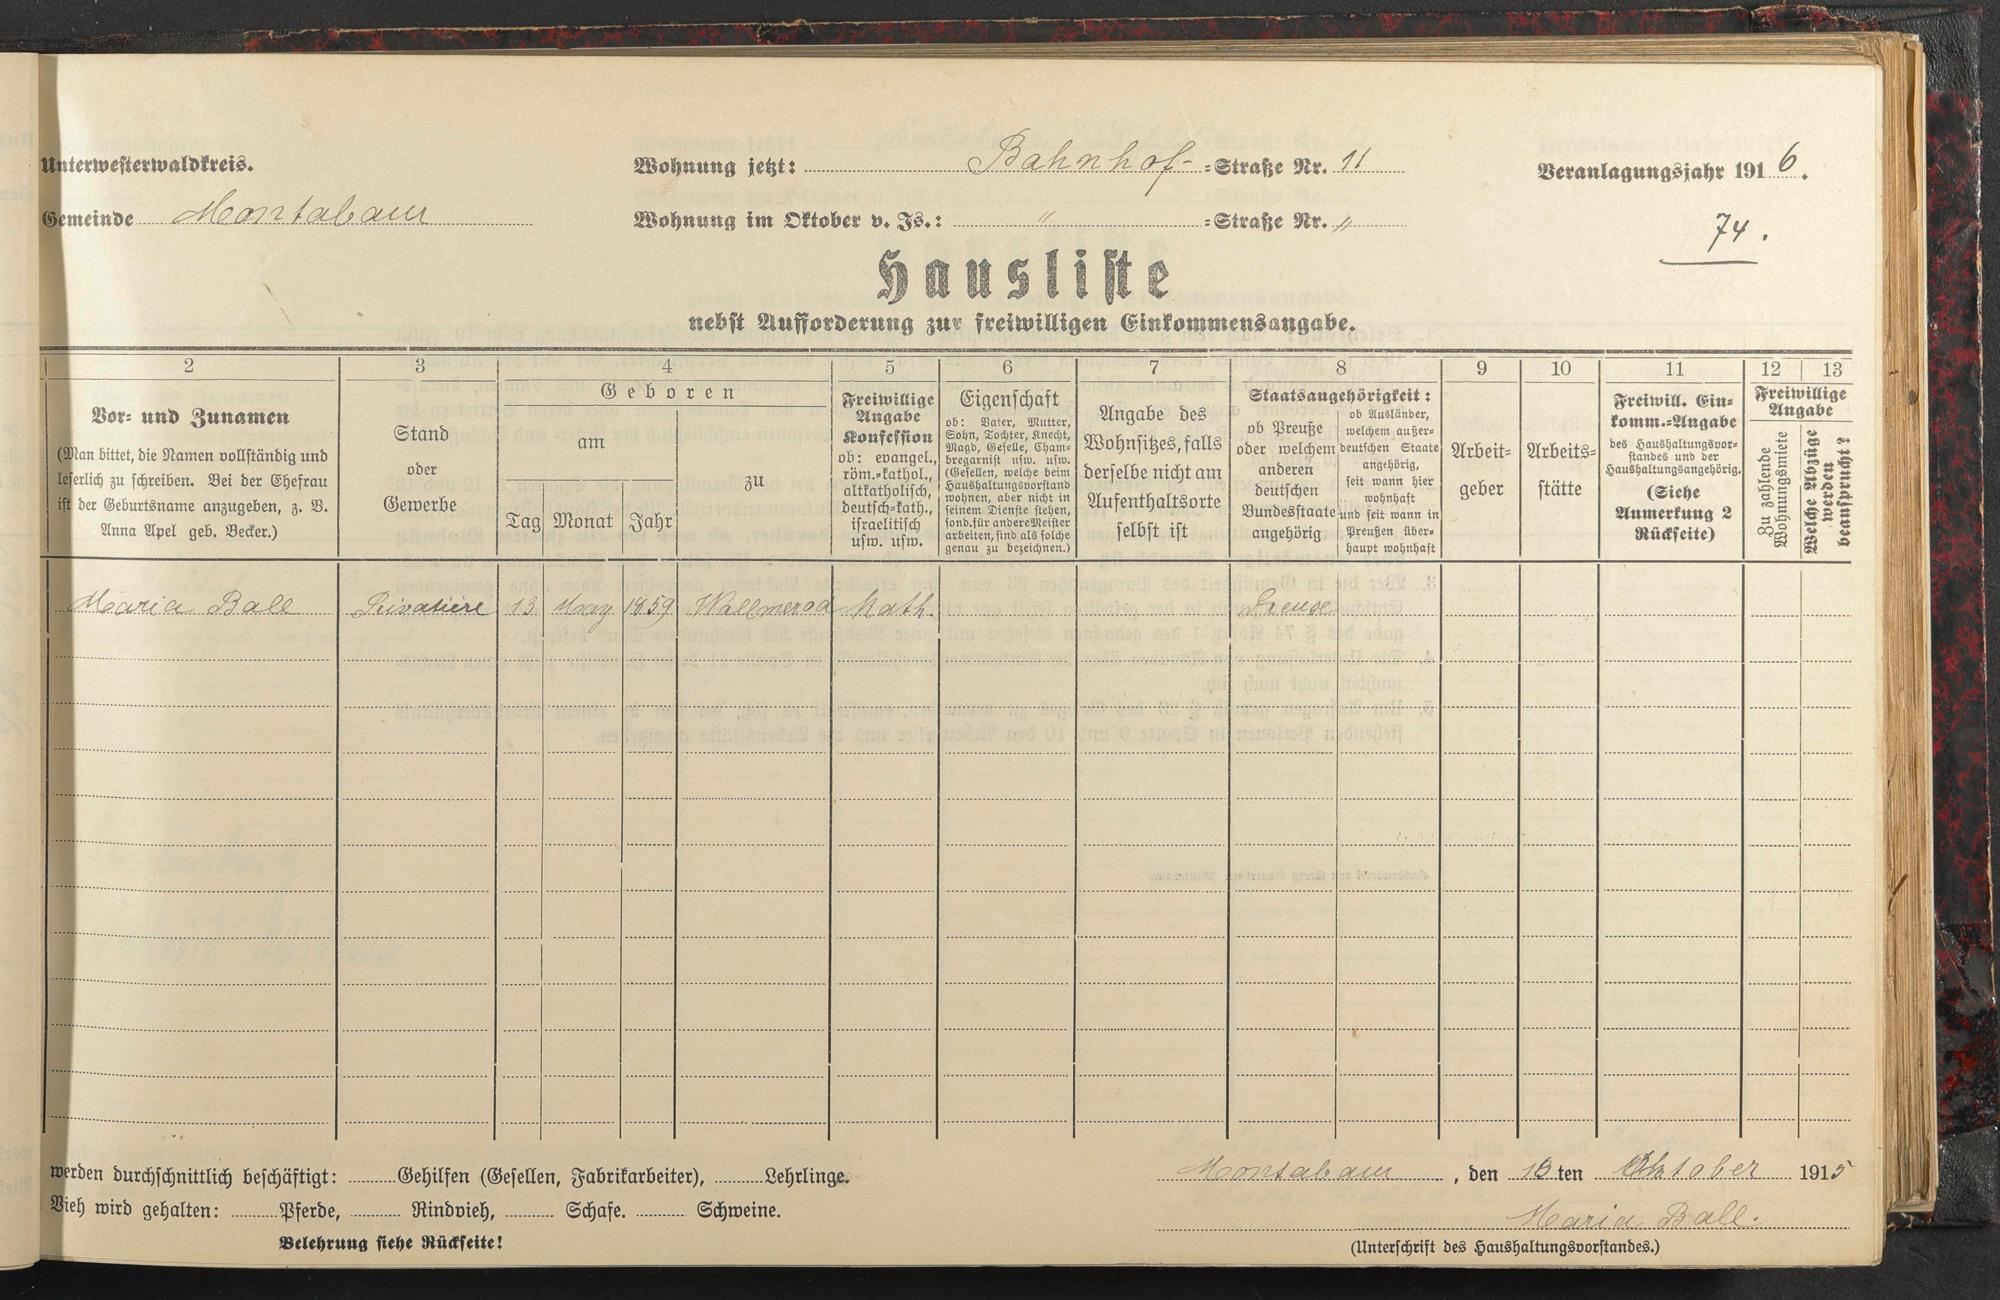 Unterwesterwaldkreis.
Wohnung jetzt: Bahnhof- =Straße Nr. 11
Veranlagungsjahr 1916.
Gemeinde Montabaur
Wohnung im Oktober v. Js.: " =Straße Nr. "
74.
Hausliste
nebst Aufforderung zur freiwilligen Einkommensangabe.
2
Vor- und Zunamen
(Man bittet, die Namen vollständig und
leserlich zu schreiben. Bei der Ehefrau
ist der Geburtsname anzugeben, z. B.
Anna Apel geb. Becker.)
3
Stand
oder
Gewerbe
4
Geboren
am
Tag Monat Jahr
zu
5
Freiwillige
Angabe
Konfession
ob: evangel.,
röm.-kathol.,
altkatholisch,
deutsch-kath.,
israelitisch
usw. usw.
6
Eigenschaft
ob: Vater, Mutter,
Sohn, Tochter, Knecht,
Magd, Geselle, Cham-
bregarnist usw. usw.
(Gesellen, welche beim
Haushaltungsvorstand
wohnen, aber nicht in
seinem Dienste stehen,
sond. für andere Meister
arbeiten, sind als solche
genau zu bezeichnen.)
7
Angabe des
Wohnsitzes, falls
derselbe nicht am
Aufenthaltsorte
selbst ist
8
Staatsangehörigkeit:
ob Preuße
oder welchem
anderen
deutschen
Bundesstaate
angehörig
ob Ausländer,
welchem außer-
deutschen Staate
angehörig,
seit wann hier
wohnhaft
und seit wann in
Preußen über-
haupt wohnhaft
9
Arbeit-
geber
10
Arbeits-
stätte
11
Freiwill. Ein-
komm.-Angabe
des Haushaltungsvor-
standes und der
Haushaltungsangehörig.
(Siehe
Anmerkung 2
Rückseite)
12 13
Freiwillige
Angabe
Zu zahlende
Wohnungsmiete
Welche Abzüge
werden
beansprucht?
Maria Ball Privatière 13 May 1859 Wallmerod Kath. Preuse
werden durchschnittlich beschäftigt: Gehilfen (Gesellen, Fabrikarbeiter), Lehrlinge.
Vieh wird gehalten: Pferde, Rindvieh, Schafe. Schweine.
Belehrung siehe Rückseite!
Montabaur, den 13ten Oktober 1915
Maria Ball.
(Unterschrift des Haushaltungsvorstandes.)